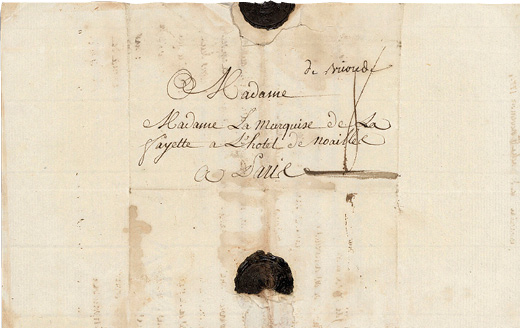 de brioude
A Madame
Madame La Marquise de La
fayette a L'hotel de noailles
a Paris